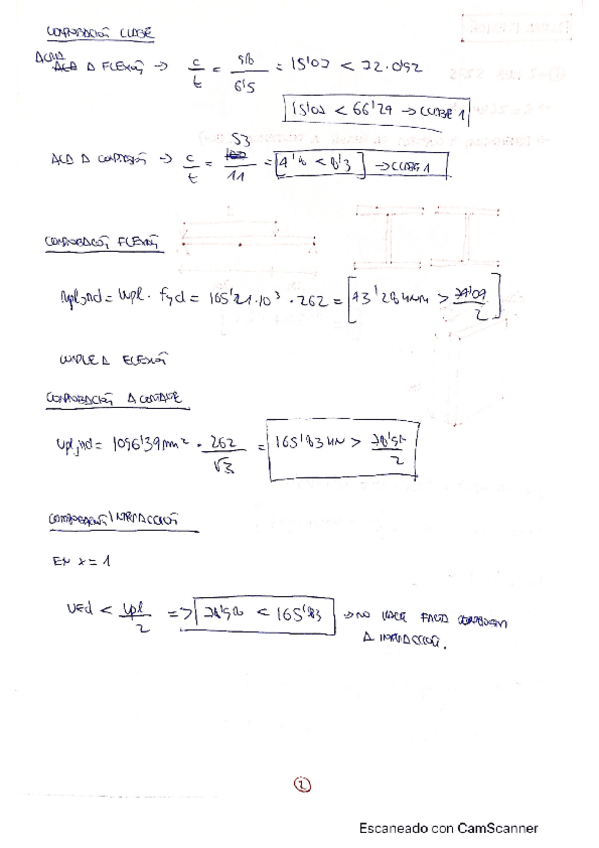 COMPROBACIÓN CLASE
ALMA A FLEXIÓN → c/t = 98/6'5 = 15'07 < 72·0'92
15'07 < 66'24 → CLASE 1
ALA A COMPRESIÓN → c/t = 53/11 = 4'8 < 8'3 → CLASE 1
COMPROBACIÓN FLEXIÓN
Mpl,Rd = Wpl · fyd = 165'21·10³ · 262 = 43'28 kNm > /2
CUMPLE A FLEXIÓN
COMPROBACIÓN A CORTANTE
Vpl,Rd = 1096'39 mm² · 262/√3 = 165'83 kN > /2
COMPROBACIÓN INTERACCIÓN
EN x = 1
VEd < Vpl/2 => < 165'83 → NO HACE FALTA COMPROBAR
A INTERACCIÓN.
2
Escaneado con CamScanner